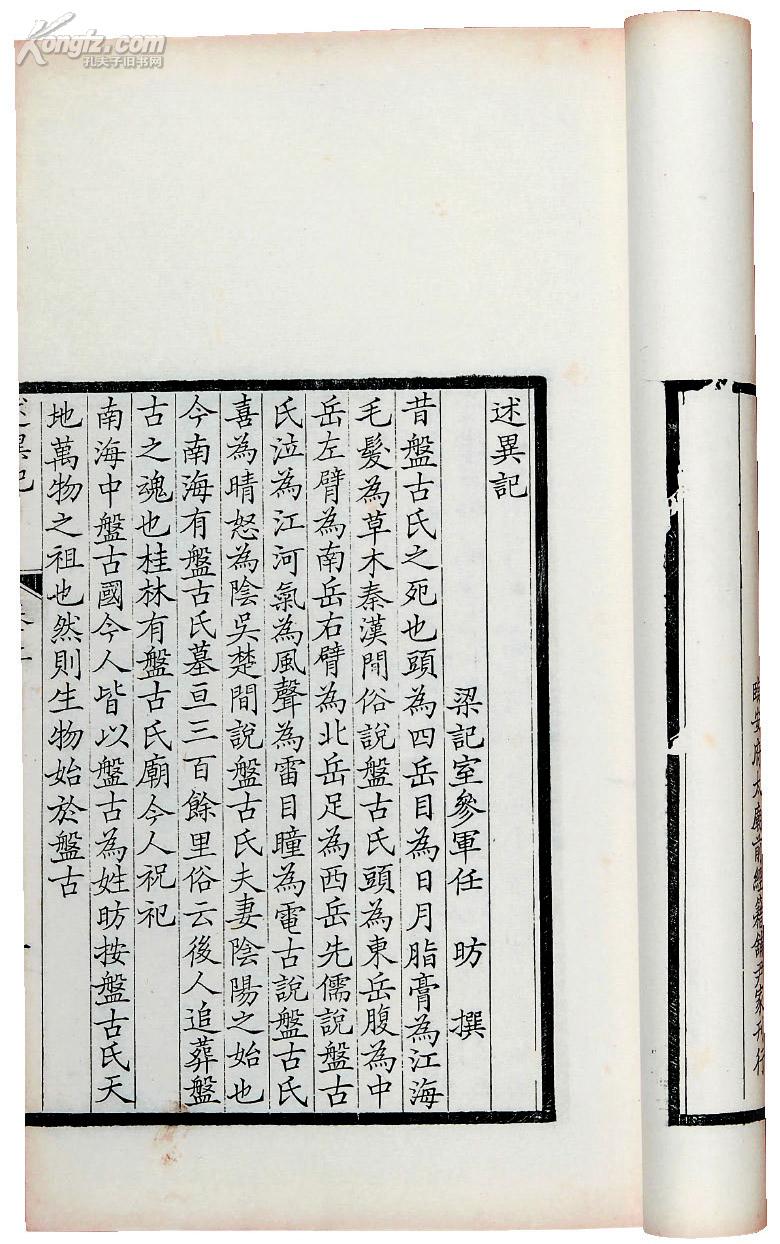 Kongfz.com
孔夫子旧书网
臨安府太廟前經籍鋪尹家刊行
述異記
梁記室參軍任 昉 撰
昔盤古氏之死也頭為四岳目為日月脂膏為江海
毛髮為草木秦漢間俗說盤古氏頭為東岳腹為中
岳左臂為南岳右臂為北岳足為西岳先儒說盤古
氏泣為江河氣為風聲為雷目瞳為電古說盤古氏
喜為晴怒為陰吳楚間說盤古氏夫妻陰陽之始也
今南海有盤古氏墓亘三百餘里俗云後人追葬盤
古之魂也桂林有盤古氏廟今人祝祀
南海中盤古國今人皆以盤古為姓昉按盤古氏天
地萬物之祖也然則生物始於盤古
述異記